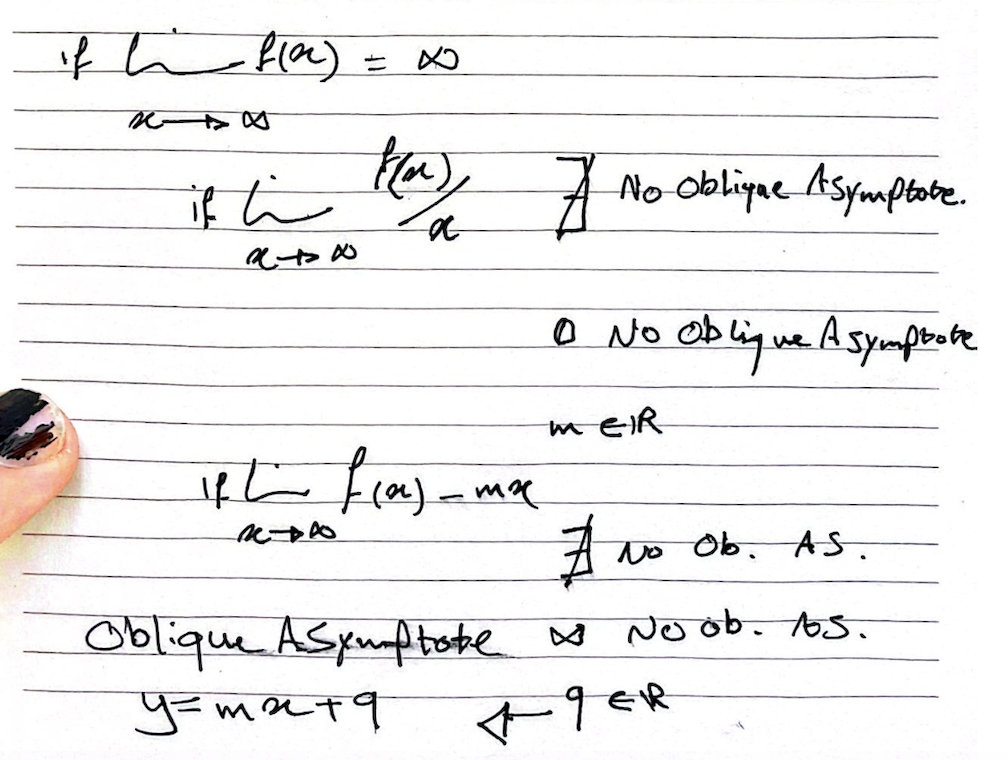 if lim f(x) = ∞
x→∞
if lim f(x)/x ∄ No Oblique Asymptote.
x→∞
0 No Oblique Asymptote
m ∈ ℝ
if lim f(x) - mx
x→∞
∄ No Ob. AS.
Oblique Asymptote ∞ No ob. AS.
y = mx + q ← q ∈ ℝ